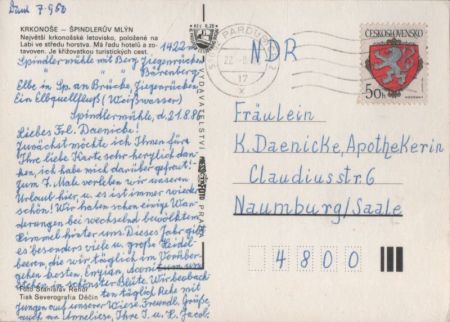 Dank 7.9.80
KRKONOŠE – ŠPINDLERŮV MLÝN
Největší krkonošské letovisko, položené na
Labi ve středu horstva. Má řadu hotelů a zo-
tavoven. Je křižovatkou turistických cest.
1422 m
Spindlermühle mit Berg Ziegenrücken
" " Bärenberg
Elbe in Sp. an Brücke Ziegenrücken
Ein Elbquellfluß (Weißwasser)
Spindlermühle, d. 21.8.86
Liebes Frl. Daenicke!
Zunächst möchte ich Ihnen für
Ihre liebe Karte sehr herzlich dan-
ken, ich habe mich darüber gefreut!
Zum 7. Male verleben wir unseren
Urlaub hier u. es ist immer wieder
schön! Wir haben schon einige Wan-
derungen bei wechselnd bewölktem
Himmel hinter uns. Dieses Jahr gibt
es besonders viele u. große Heidel-
beeren, die wir täglich im Vorüber-
gehen kosten, Enzian,
stehen in schönster Blüte. Wir beobach-
ten täglich Rehe mit
Jungen auf unserer Wiese. Freundl. Grüße,
auch an Anneliese, Ihre I. u. E. Jacob.
Foto Stanislav
Tisk Severografia Děčín
VYDAVATELSTVÍ
PRA
PARDU
22.-8.
17
x
NDR
ČESKOSLOVENSKO
50h
Fräulein
K. Daenicke, Apothekerin
Claudiusstr. 6
Naumburg/Saale
4800